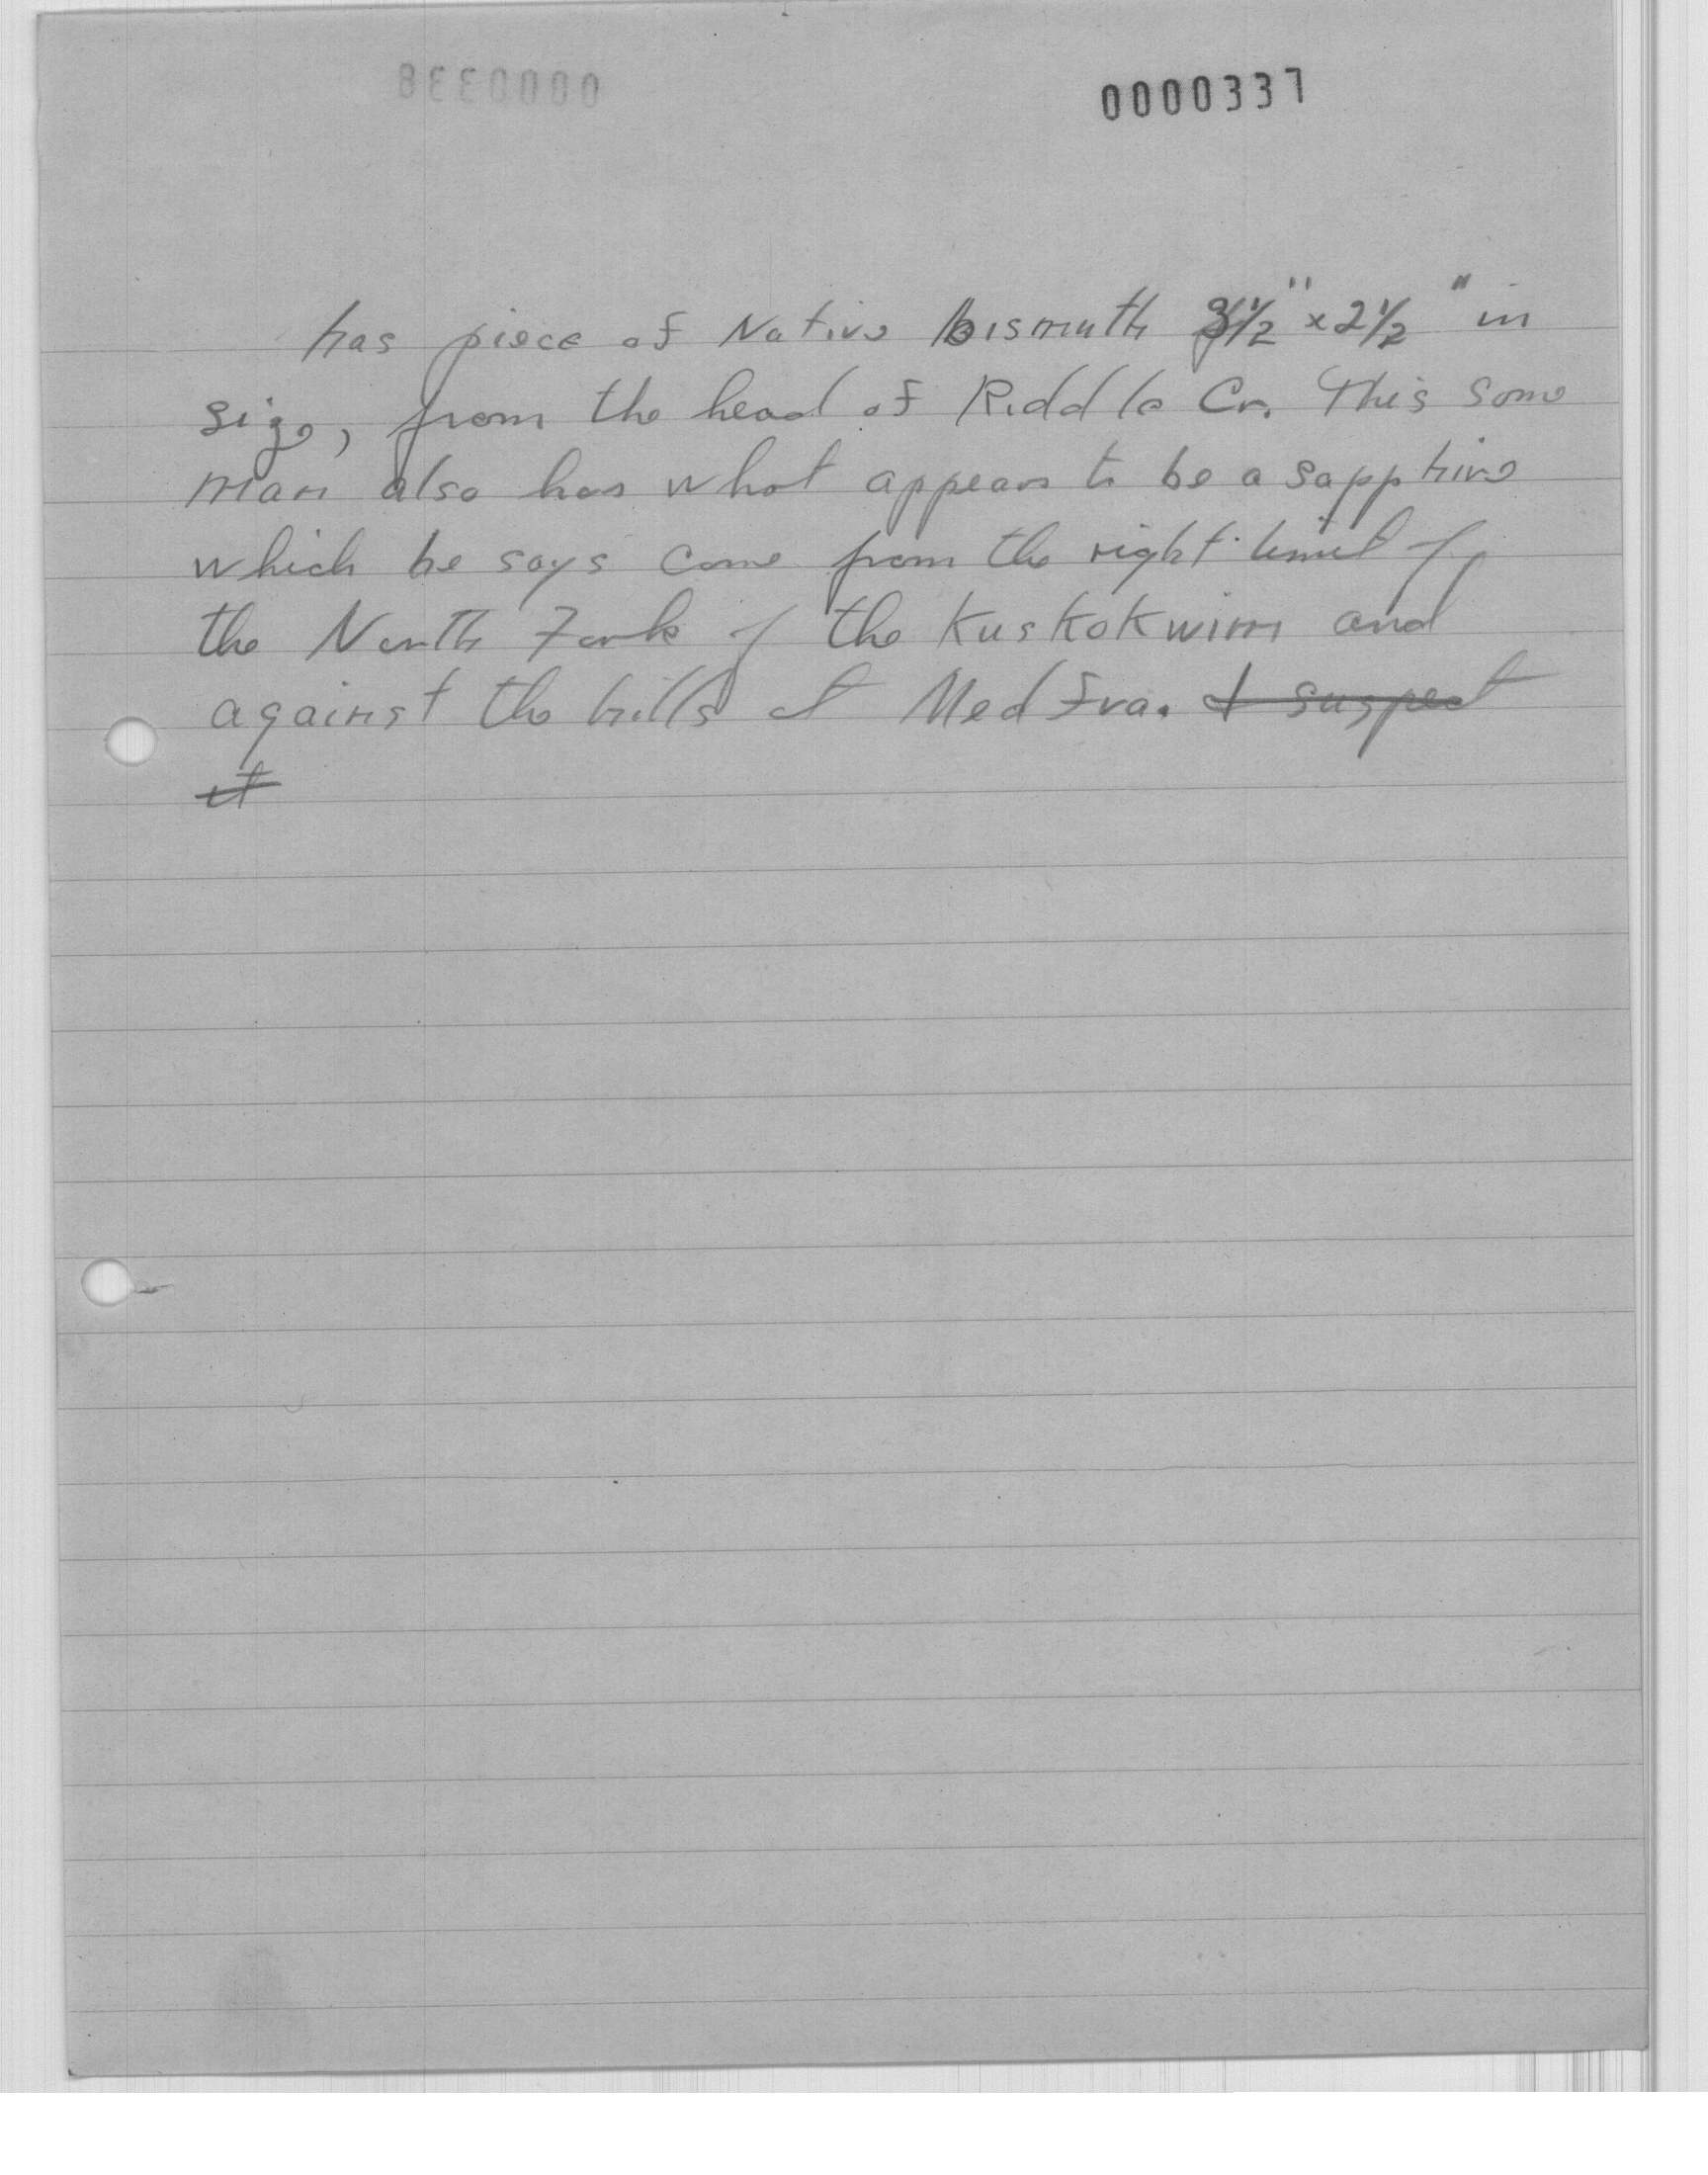 0000337
has piece of Native bismuth 3 1/2" x 2 1/2" in
size, from the head of Riddle Cr. This same
man also has what appears to be a sapphire
which he says came from the right limit of
the North Fork of the Kuskokwim and
against the hills at Medfra. I suspect
it